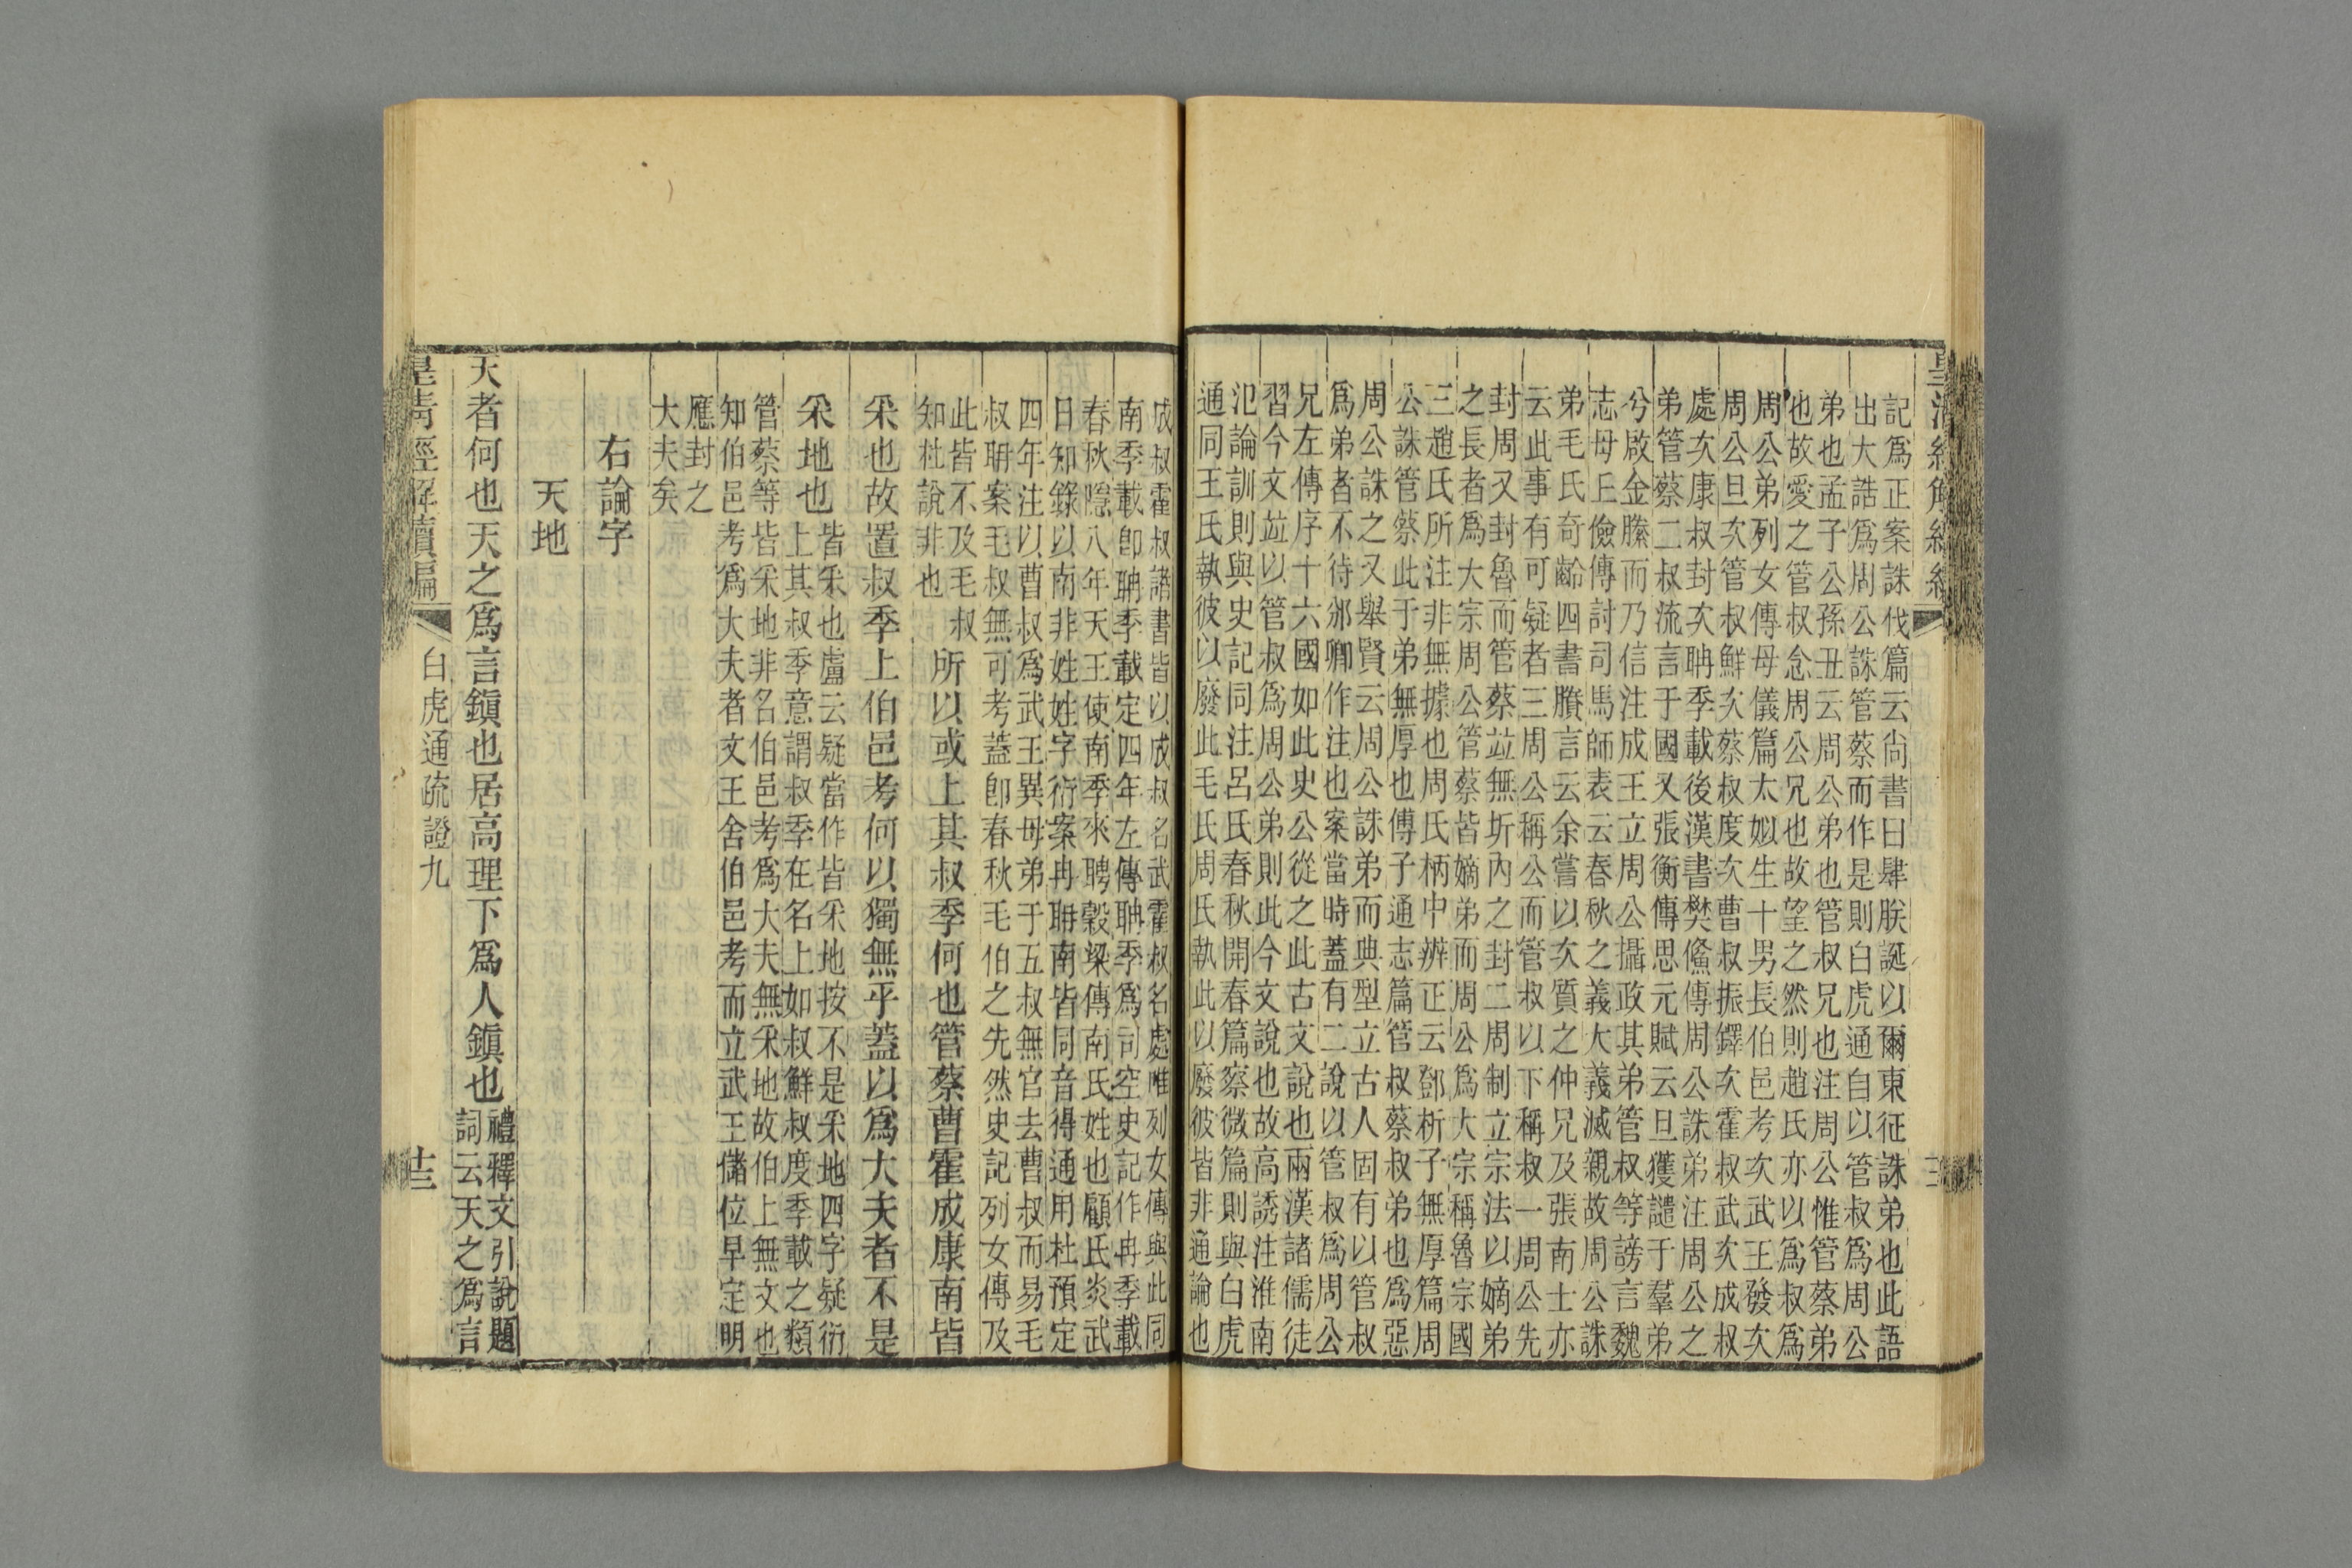 記爲正案誅伐篇云尙書曰肆朕誕以爾東征誅弟也此語
出大誥爲周公誅管蔡而作是則白虎通自以管叔爲周公
弟也孟子公孫丑云周公弟也管叔兄也注周公惟管蔡弟
也故愛之管叔念周公兄也故望之然則趙氏亦以爲叔爲
周公弟列女傳母儀篇太姒生十男長伯邑考次武王發次
周公旦次管叔鮮次蔡叔度次曹叔振鐸次霍叔武次成叔
處次康叔封次聃季載後漢書樊儵傳周公誅弟注周公之
弟管蔡二叔流言于國又張衡傳思元賦云旦獲讟于羣弟
兮啟金縢而乃信注成王立周公攝政其弟管叔等謗言魏
志毋丘儉傳討司馬師表云春秋之義大義滅親故周公誅
弟毛氏奇齡四書賸言云余嘗以次質之仲兄及張南士亦
云此事有可疑者三周公稱公而管叔以下稱叔一周公先
封周又封魯而管蔡並無圻內之封二周制立宗法以嫡弟
之長者爲大宗周公管蔡皆嫡弟而周公爲大宗稱魯宗國
三趙氏所注非無據也周氏柄中辨正云鄧析子無厚篇周
公誅管蔡此于弟無厚也傅子通志篇管叔蔡叔弟也爲惡
周公誅之又舉賢云周公誅弟而典型立古人固有以管叔
爲弟者不待邠卿作注也案當時蓋有二說以管叔爲周公
兄左傳序十六國如此史公從之此古文說也兩漢諸儒徒
習今文並以管叔爲周公弟則此今文說也故高誘注淮南
氾論訓則與史記同注呂氏春秋開春篇察微篇則與白虎
通同王氏執彼以廢此毛氏周氏執此以廢彼皆非通論也
成叔霍叔諸書皆以成叔名武霍叔名處唯列女傳與此同
南季載卽聃季載定四年左傳聃季爲司空史記作冉季載
春秋隱八年天王使南季來聘穀梁傳南氏姓也顧氏炎武
日知錄以南非姓姓字衍案冉聃南皆同音得通用杜預定
四年注以曹叔爲武王異母弟于五叔無官去曹叔而易毛
叔聃案毛叔無可考蓋卽春秋毛伯之先然史記列女傳及
此皆不及毛叔
知杜說非也
所以或上其叔季何也管蔡曹霍成康南皆
采也故置叔季上伯邑考何以獨無乎蓋以爲大夫者不是
采地也
皆采也盧云疑當作皆采地按不是采地四字疑衍
上其叔季意謂叔季在名上如叔鮮叔度季載之類
管蔡等皆采地非名伯邑考爲大夫無采地故伯上無文也
知伯邑考爲大夫者文王舍伯邑考而立武王儲位早定明
應封之
大夫矣
右論字
天地
天者何也天之爲言鎭也居高理下爲人鎭也
禮釋文引說題
詞云天之爲言
皇清經解續編
白虎通疏證九
十三